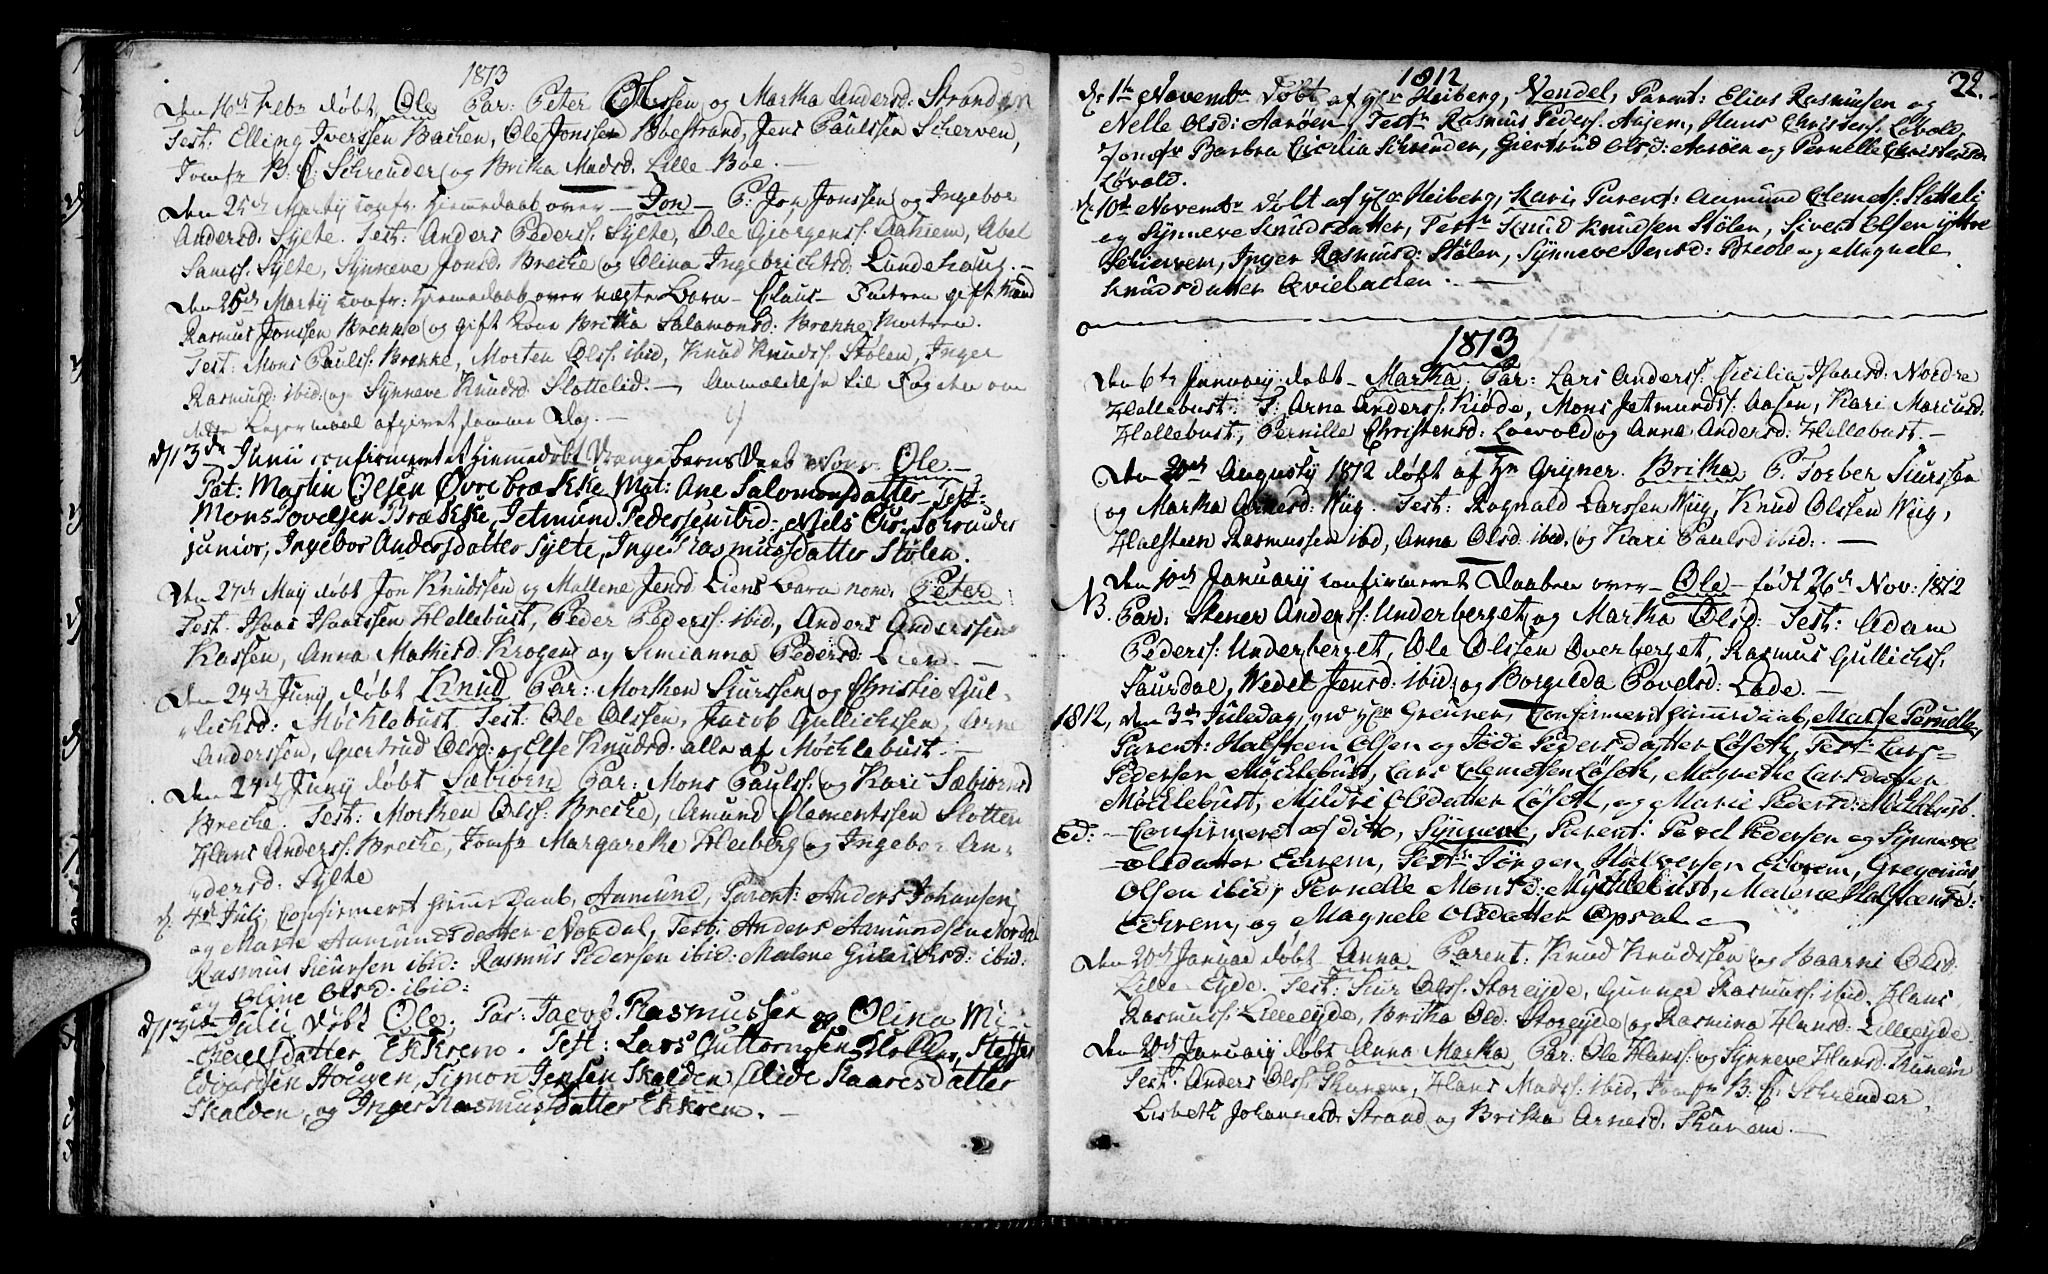 1813
Den 16de Febr døbt Ole Par: Peter Pederssen og Martha Andersd: Stranden
Test: Elling Iverssen Bachen, Ole Jonssen Bøestrand, Jens Paulssen Scherven,
Jomfr B: C: Schreuder og Britha Madsd. Lille Boe. —
Den 25de Martij confr: Hiemmedaab over — Jon — P: Jon Jonssen og Ingebor
Andersd: Sylte. Test: Anders Pederss: Sylte, Ole Giørgenss: Aahiem, Abel
Samss: Sylte, Synneve Jonsd: Brecke og Olina Ingebrichtsd: Lundehaug. —
Den 25de Martij confr: Hiemedaab over uægte Barn — Claus — Fadren gift Mand
Rasmus Jonssen Brekke og gift Kone Britha Salamonsd: Brekke Modren.
Test: Mons Paulss: Brekke, Morten Olss: ibid, Knud Knudss: Stølen, Inger
Rasmusd: ibid: og Synneve Knudsd: Slottelid. — Anmeldelse til Fogden om
dette Leyermaal afgivet samme Dag. —
d/13de Junii confirmeret et Hiemedøbt Drænge Barns Daab Nom: Ole. —
Pat: Martin Olsen Øvre bræKKe Mat: Ane Salomonsdatter Test:
Mons Povelsen BræKKe, Jetmund Pedersen ibid: Niels Chr: Schrøuder
junior, Ingebor Andersdatter Sylte, Inger Rasmusdatter Stølen.
Den 27de May døbt Jon Knudssen og Mallene Jensd Liens Barn nom. Peter
Test. Haas Haassen Hellebust, Peder Pederss: ibid, Anders Anderssen
Kassen, Anna Mathisd Krogen og Simianna Pedersd: Lien. —
Den 24de Juny døbt Knud Par: Morthen Siurssen og Christie Gul-
lichsd: Møchlebust. Test: Ole Olssen, Jacob Gullichssen, Arne
Anderssen, Giertrud Olsd: og Else Knudsd. alle af Møchlebust. —
Den 24de Juny døbt Sæbiørn Par: Mons Paulss: og Kari Sæbiørnsd
Brecke. Test: Morthen Olss: Brecke, Amund Clementssen Slotten
Hans Anderss: Brecke, Jomfr Margarethe Heiberg og Ingebor An-
dersd: Sylte
d. 4de Julj, Confirmeret Hiemedaab, Aamund, Parent: Anders Johansen
og Marte Aamundsdatter Nordal, Test: Anders Aamundsen Nordal
Rasmus Siursen ibid: Rasmus Pedersen ibid: Malene Gulichsd: ibid:
og Oline Olsd. ibid:
d/13de Julii døbt Ole, Par: Jacob Rasmussen og Olina Mi-
chelsdatter Ekkrem. Test: Lars Guttormsen Steffen
Edvartsen Hougen, Simon Jensen Skalden Kaaresdatter
Skalden, og Inger Rasmusdatter Ekkrem. —
1812
22.
d: 1te Novembr døbt af Hr Heiberg, Vendel, Parent: Elias Rasmusen og
Nelle Olsd: Aarøen Testr Rasmus Peders: Anjem, Hans Christens: Løvold,
Jomfr Barbra Cicilia Schreuder, Giertrud Olsd: Aarøen og Pernelle Christensd:
Løvold.
d: 10de Novembr døbt af Hr Heiberg, Kari, Parent: Aamund Clemets: Slotteli
og Synneve Knudsdatter, Testr Knud Knudsen Stølen, Sivert Olsen yttre
Scierven, Inger Rasmusd: Stølen, Synneve Jensd: Brede og Magnele
Knudsdatter Qviebachen. —
1813
Den 6te January døbt — Martha. Par: Lars Anderss. Cicilia Haasd: Nordre
Hellebust: T: Arne Anderss: Kidde, Mons Jetmundss: Aasen, Kari Marcusd.
Hellebust, Pernille Christensd: Løevold og Anne Andersd: Hellebust. —
Den 20de Augusty 1812 døbt af Hr Gryner. Britha P. Torber Siurssen
og Martha Arnesd: Wiig. Test: Rognald Larssen Wiig, Knud Olssen Wiig,
Halsteen Rasmussen ibd, Anna Olsd: ibid. og Kari Paulsd ibid: —
NB. Den 10de January confirmeret Daaben over — Ole — født 26de Nov: 1812
Par: Stener Anderss: Underberget og Martha Olsd: Test: Adam
Pederss: Underberget, Ole Olssen Overberget, Rasmus Gullichss:
Saurdal, Wedel Jensd: ibid: og Borgilda Povelsd: Lade. —
1812, den 3de Juledag, ved Hr Greuner, Confirmerit Hiemedaab, Marte Pernelle,
Parent: Halsteen Olsen og Jøde Pedersdatter Løseth, Test: Lars
Pedersen Møcklebust, Lars Clemetsen Løseth, Magnethe Larsdatter
Møcklebust, Mildri Olsdatter Løseth, og Marie Pedersd: Møcklebust.
Ed: — Confirmeret af ditto, Synneve, Parent: Povel Pedersen og Synneve
Olsdatter Eckrem, Testr: Jørgen Halversen Eckrem, Gregorius
Olsen ibid, Pernelle Monsd: Mycklebust, Malene Halsteensd:
Eckrem, og Magnele Olsdatter Opsal —
Den 20de Januar døbt Anna Parent: Knud Knudssen og Kaarni Olsd:
Lille Eyde. Test: Siur Olss: Storeyde, Gunner Rasmuss: ibid. Hans
Rasmuss: Lilleeyde, Britha Olsd: Storeyde og Rasmina Hansd: Lilleeyde.
Den 20de January døbt Anna Martha Par: Ole Hanss: og Synneve Hansd. Skunem
Test: Anders Olss: Skunem, Hans Madss: ibid, Jomfr B: C: Schreuder,
Lisbeth Johannesd: Strand og Britha Arnesd: Skunem. —